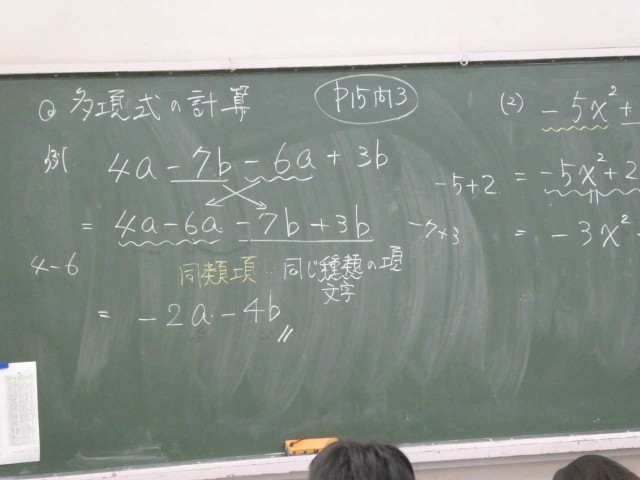 ◎ 多項式の計算
P15問3
例 4a - 7b - 6a + 3b
= 4a - 6a - 7b + 3b
4 - 6
-7+3
同類項‥同じ種類の項
文字
= -2a - 4b
(2) -5x² +
-5+2 = -5x² + 2
= -3x² -